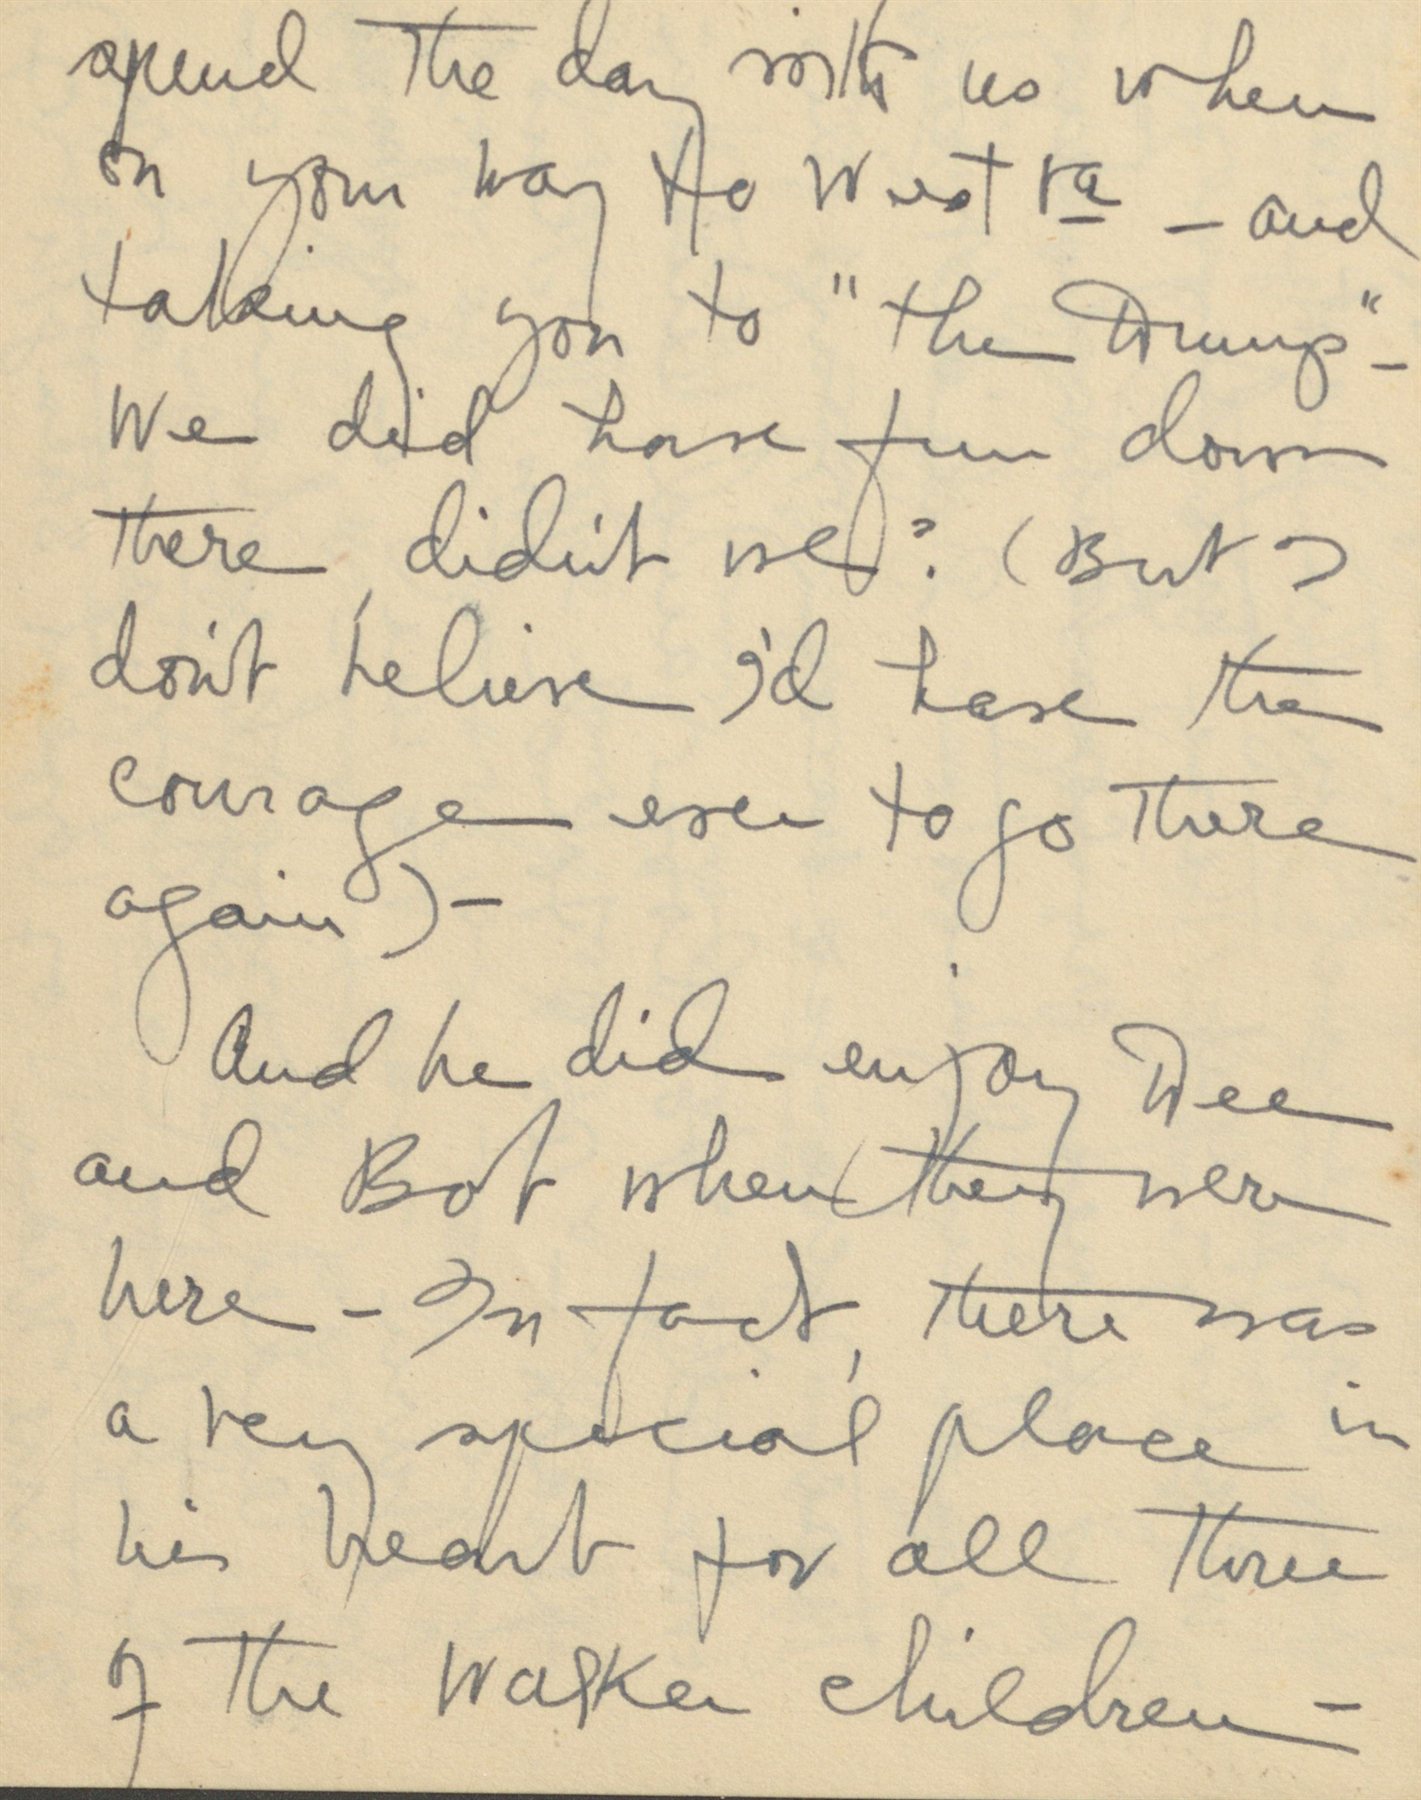 spend the day with us when
on your way to West Va - and
taking you to "the Dump" -
We did have fun down
there, didn't we? (But I
don't believe I'd have the
courage even to go there
again) -
And he did enjoy Dee
and Bot when they were
here - In fact, there was
a very special place in
his heart for all three
of the Walker children -